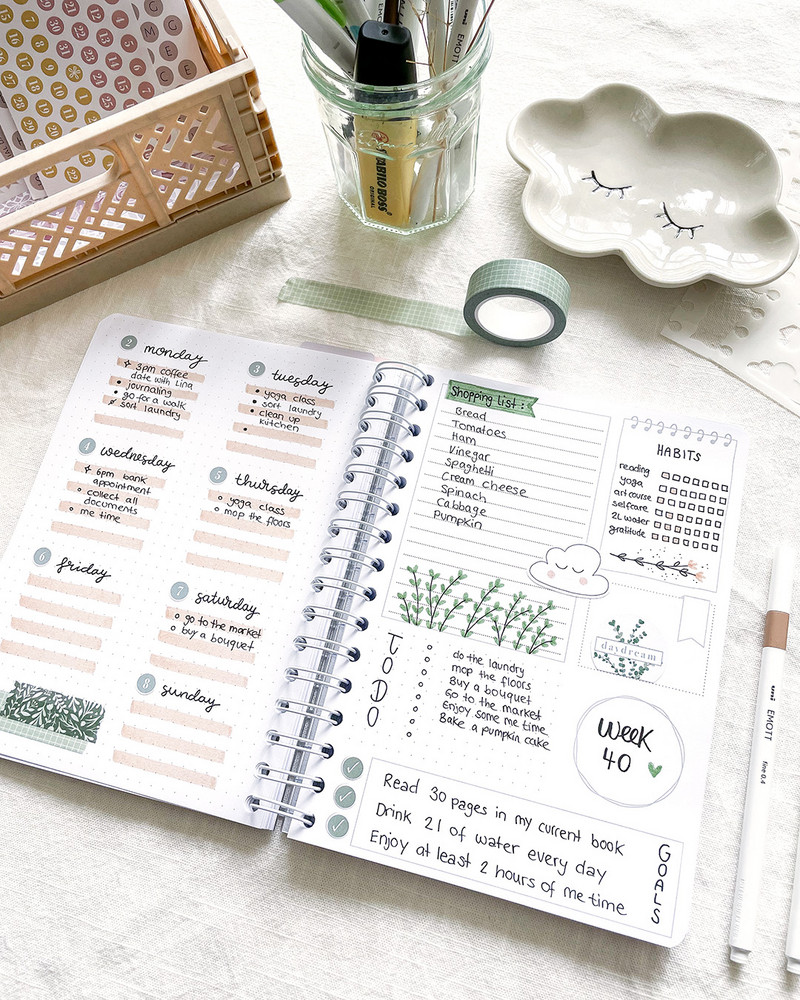 EMOTT
STABILO BOSS
ORIGINAL
2 monday
3pm coffee
date with Lina
journaling
go for a walk
sort laundry
3 tuesday
yoga class
sort laundry
clean up
kitchen
4 wednesday
6pm bank
appointment
collect all
documents
me time
5 thursday
yoga class
mop the floors
6 friday
7 saturday
go to the market
buy a bouquet
8 sunday
Shopping List:
Bread
Tomatoes
Ham
Vinegar
Spaghetti
Cream cheese
Spinach
Cabbage
Pumpkin
HABITS
reading
yoga
art course
selfcare
2L water
gratitude
daydream
TO DO
do the laundry
mop the floors
Buy a bouquet
Go to the market
Enjoy some me time
Bake a pumpkin cake
Week
40
Read 30 pages in my current book
Drink 2l of water every day
Enjoy at least 2 hours of me time
GOALS
uni EMOTT fine 0.4